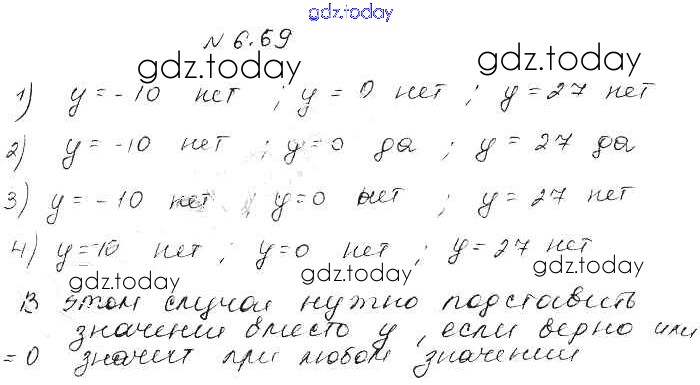 gdz.today
№ 6.69
gdz.today gdz.today
1) y = -10 нет ; y = 0 нет ; y = 27 нет
2) y = -10 нет ; y = 0 да ; y = 27 да
gdz.today gdz.today
3) y = -10 нет ; y = 0 нет ; y = 27 нет
4) y = 10 нет ; y = 0 нет ; y = 27 нет
gdz.today gdz.today gdz.today
В этом случаи нужно подставить
значении вместо y, если верно или
= 0 значит при любом значении
gdz.today gdz.today